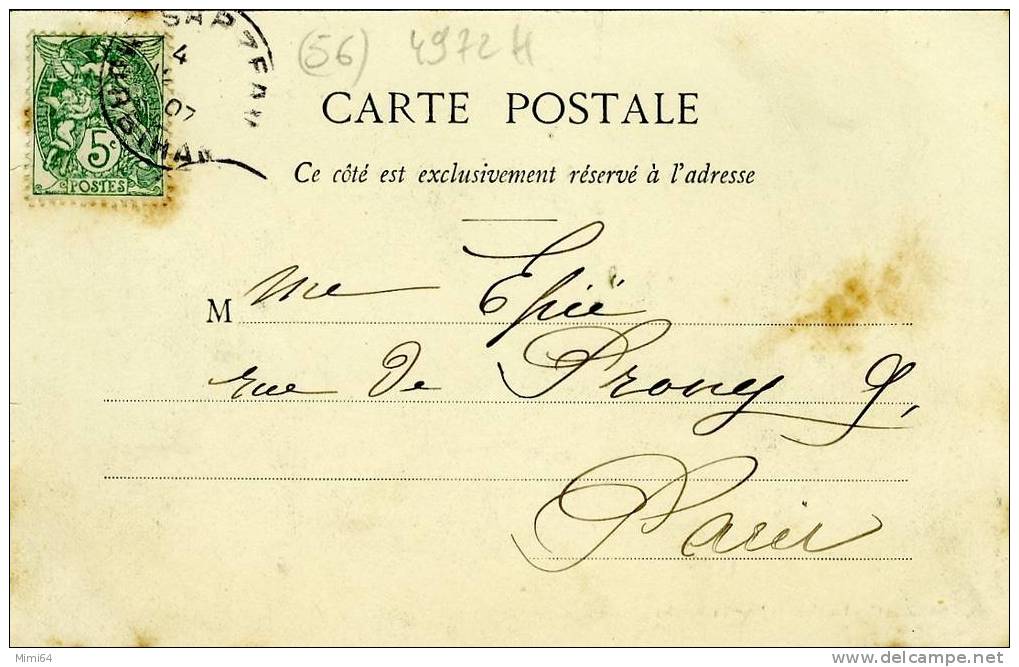 SARZEAU
4
07
MORBIHAN
5c
POSTES
(56) 4972 H
CARTE POSTALE
Ce côté est exclusivement réservé à l'adresse
M me
rue de Prony 9,
Paris
Mimi64
delcampe.net